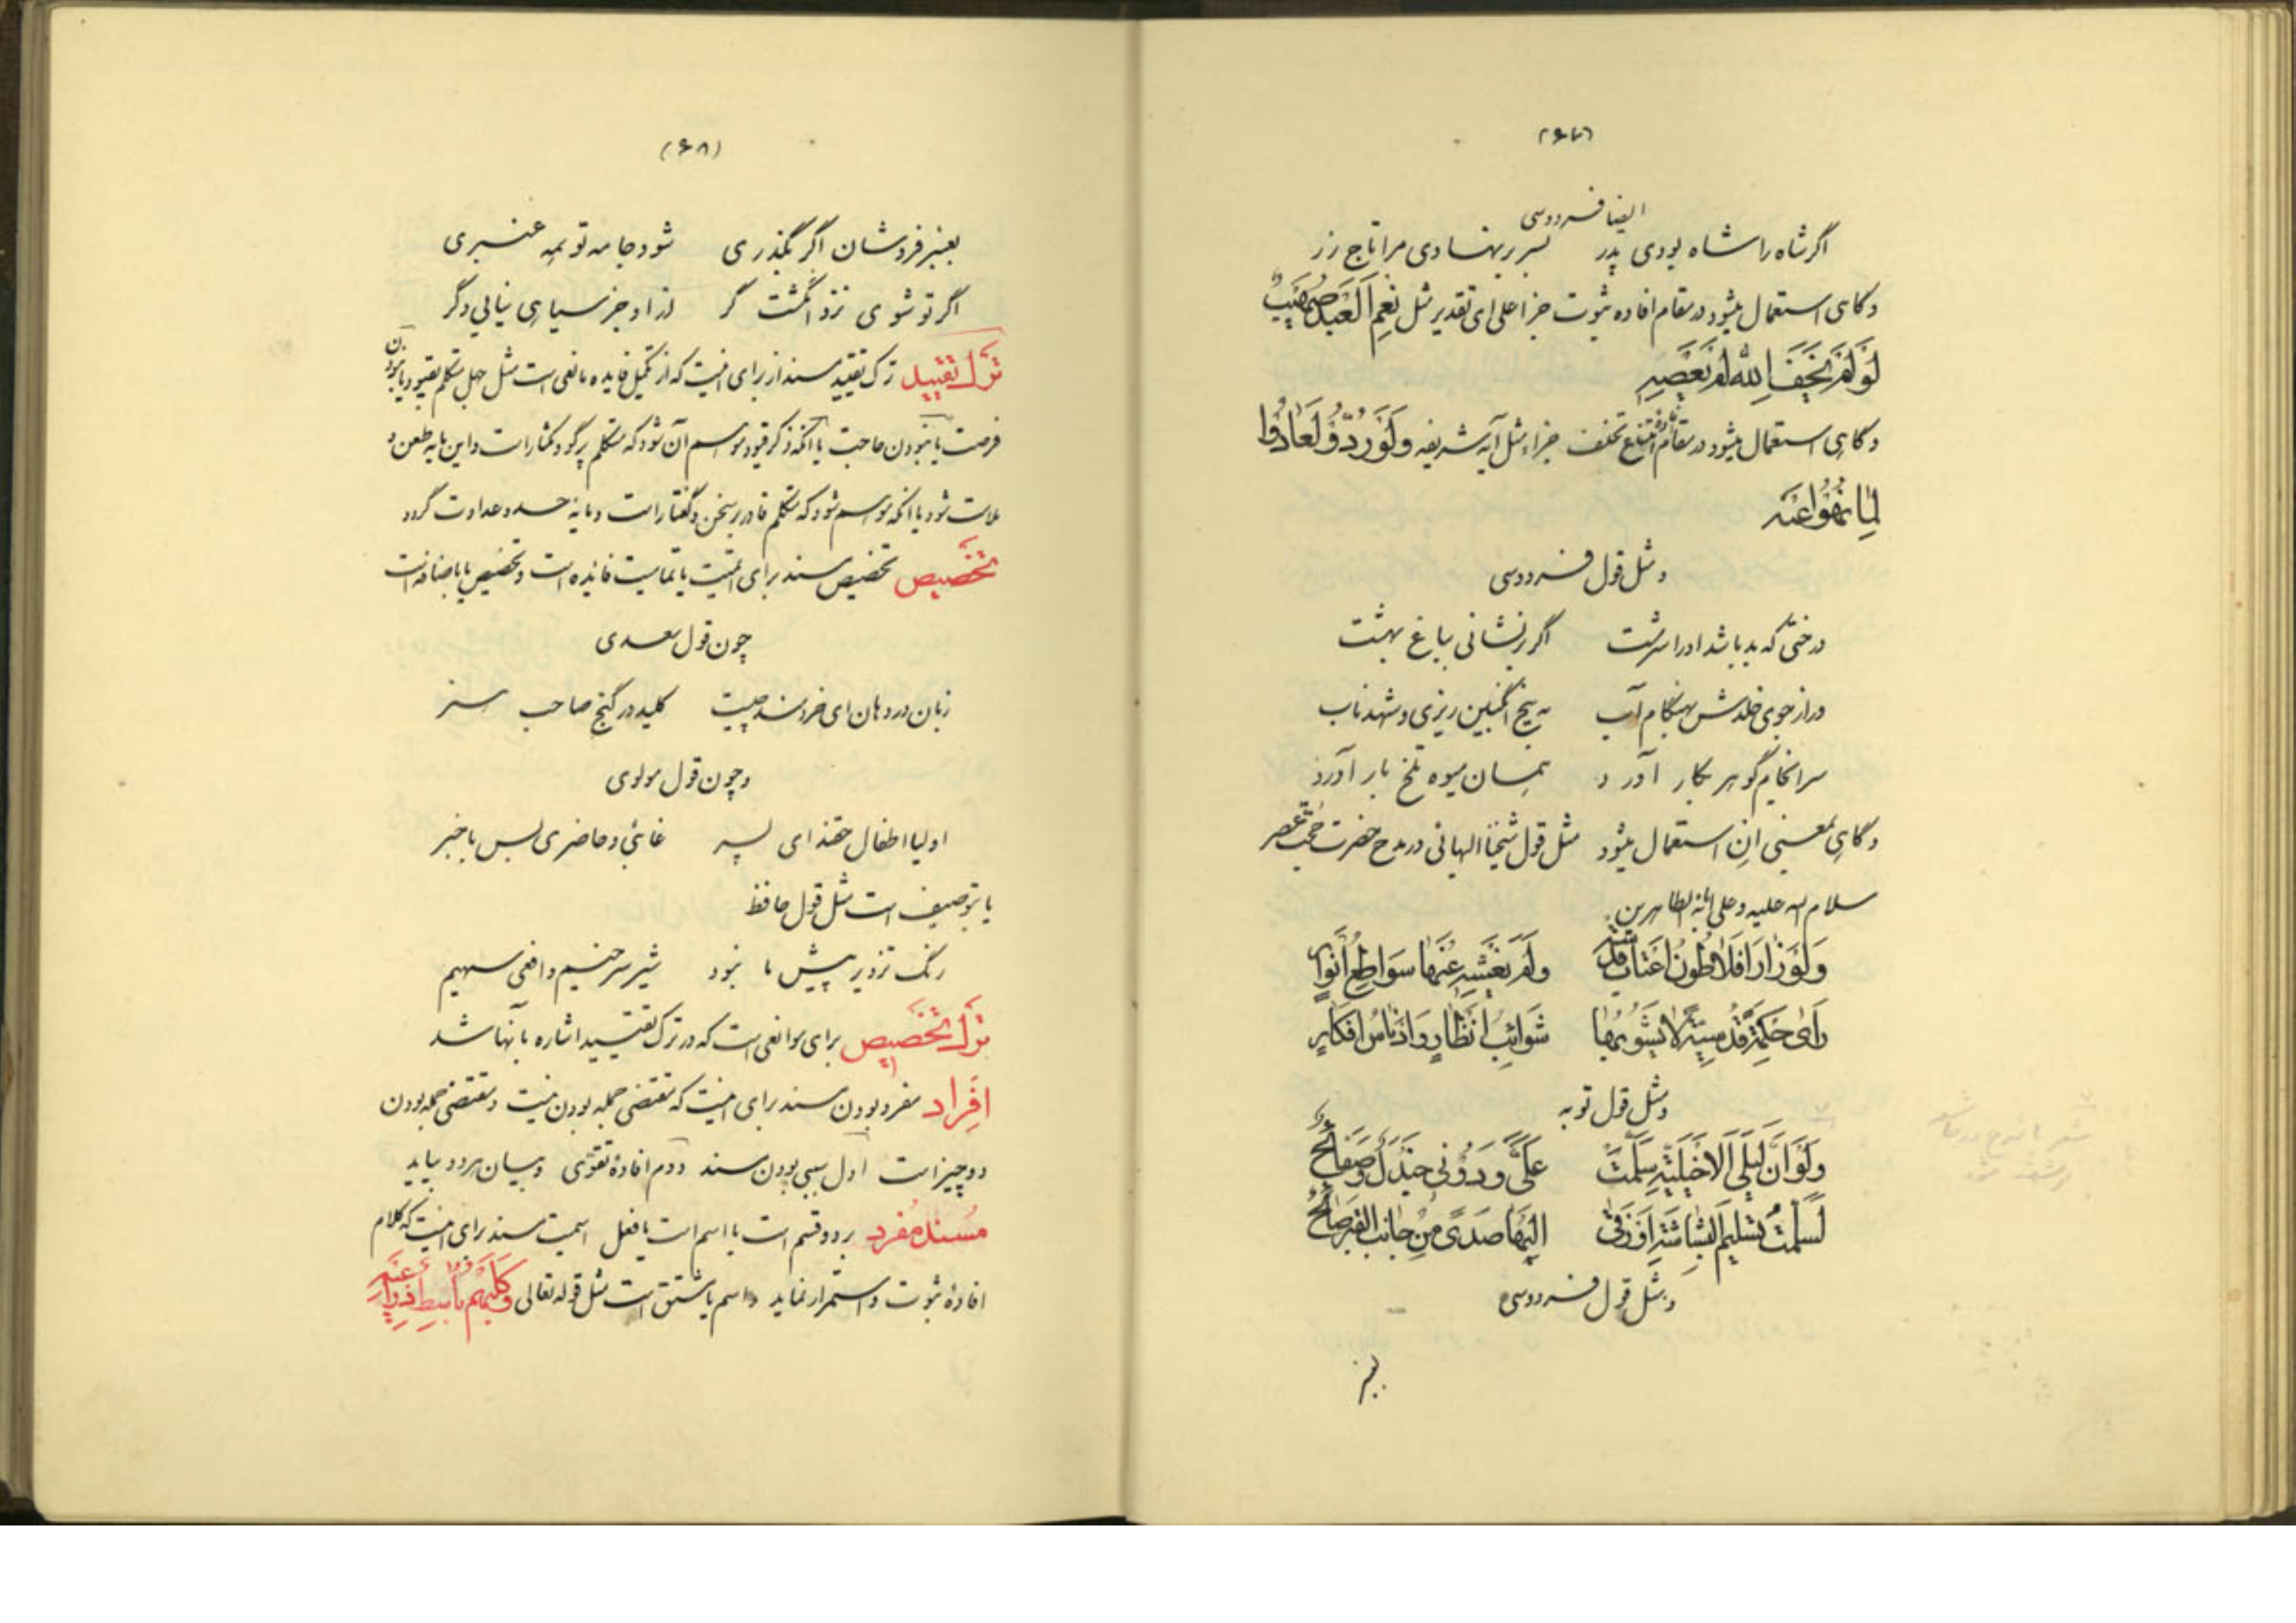 (۶۷)
ایضا فردوسی
اگر شاه را شاه بودی پدر بسر بر نهادی مرا تاج زر
و گاهی استعمال میشود در مقام افاده ثبوت جزا علی ای تقدیر مثل نِعمَ العَبدُ صُهَیبٌ
لَوْ لَمْ یَخَفِ اللّهَ لَمْ یَعْصِهِ
و گاهی استعمال میشود در مقام امتناع تخلف جزاء مثل آیه شریفه وَلَوْ رُدُّوا لَعَادُوا
لِمَا نُهُوا عَنْهُ
و مثل قول فردوسی
درختی که بد باشد او را سرشت اگر بر نشانی بباغ بهشت
ور از جوی خلدش بهنگام آب به بیخ انگبین ریزی و شهد ناب
سرانجام گوهر بکار آورد همان میوه تلخ بار آورد
و گاهی بمعنی اِن استعمال میشود مثل قول شیخنا البهائی در مدح حضرت حجت عصر
سلام الله علیه و علی آبائه الطاهرین
وَلَوْ زَارَ اَفلاطُونُ اَعتابَ قُدسِهِ وَلَمْ یُعْشِهِ عَنْهَا سَوَاطِعُ اَنْوَارٍ
رَأی حِکمَةً قُدسِیَّةً لا یَشُوبُهَا شَوَائِبُ اَنْظَارٍ وَ اَدْنَاسُ اَفْکَارٍ
و مثل قول توبه
وَلَوْ اَنَّ لَیْلَی الْاَخْیَلِیَّةَ سَلَّمَتْ عَلَیَّ وَ دُونی جَنْدَلٌ وَ صَفَائِحُ
لَسَلَّمْتُ تَسْلِیمَ الْبَشَاشَةِ اَوْ زَقَی اِلَیْهَا صَدًی مِنْ جَانِبِ الْقَبْرِ صَائِحُ
و مثل قول فردوسی
بعنبر
(۶۸)
بعنبر فروشان اگر بگذری شود جامه تو همه عنبری
اگر تو شوی نزد انگشت گر از او جز سیاهی نیابی دگر
ترك تقیید ترک تقیید مسند از برای اینست که از تکمیل فایده مانعی است مثل جهل متکلم بقیود یا نبودن
فرصت یا نبودن حاجت یا آنکه ذکر قیود موهم آن شود که متکلم پر گو و مکثار است و این مایه طعن و
ملامت شود یا آنکه موهم شود که متکلم قادر بر سخن و گفتار است و مایه حسد و عداوت گردد
تخصیص تخصیص مسند برای اتمیت یا تمامیت فائده است و تخصیص یا باضافه است
چون قول سعدی
زبان در دهان ای خردمند چیست کلید در گنج صاحب هنر
و چون قول مولوی
اولیا اطفال حقند ای پسر غائبی و حاضری بس با خبر
یا بتوصیف است مثل قول حافظ
رنگ تزویر پیش ما نبود شیر سرخیم و افعی سیهیم
ترك تخصیص برای موانعی است که در ترک تقیید اشاره بآنها شد
اِفراد مفرد بودن مسند برای اینست که مقتضی جمله بودن نیست و مقتضی جمله بودن
دو چیز است اول سببی بودن مسند دوم افادهٔ تقوّی و بیان هر دو بیاید
مسند مفرد بر دو قسم است یا اسم است یا فعل اسمیت مسند برای اینست که کلام
افادهٔ ثبوت و استمرار نماید و اسم یا مشتق است مثل قوله تعالی وَ کَلْبُهُمْ بَاسِطٌ ذِرَاعَیْهِ